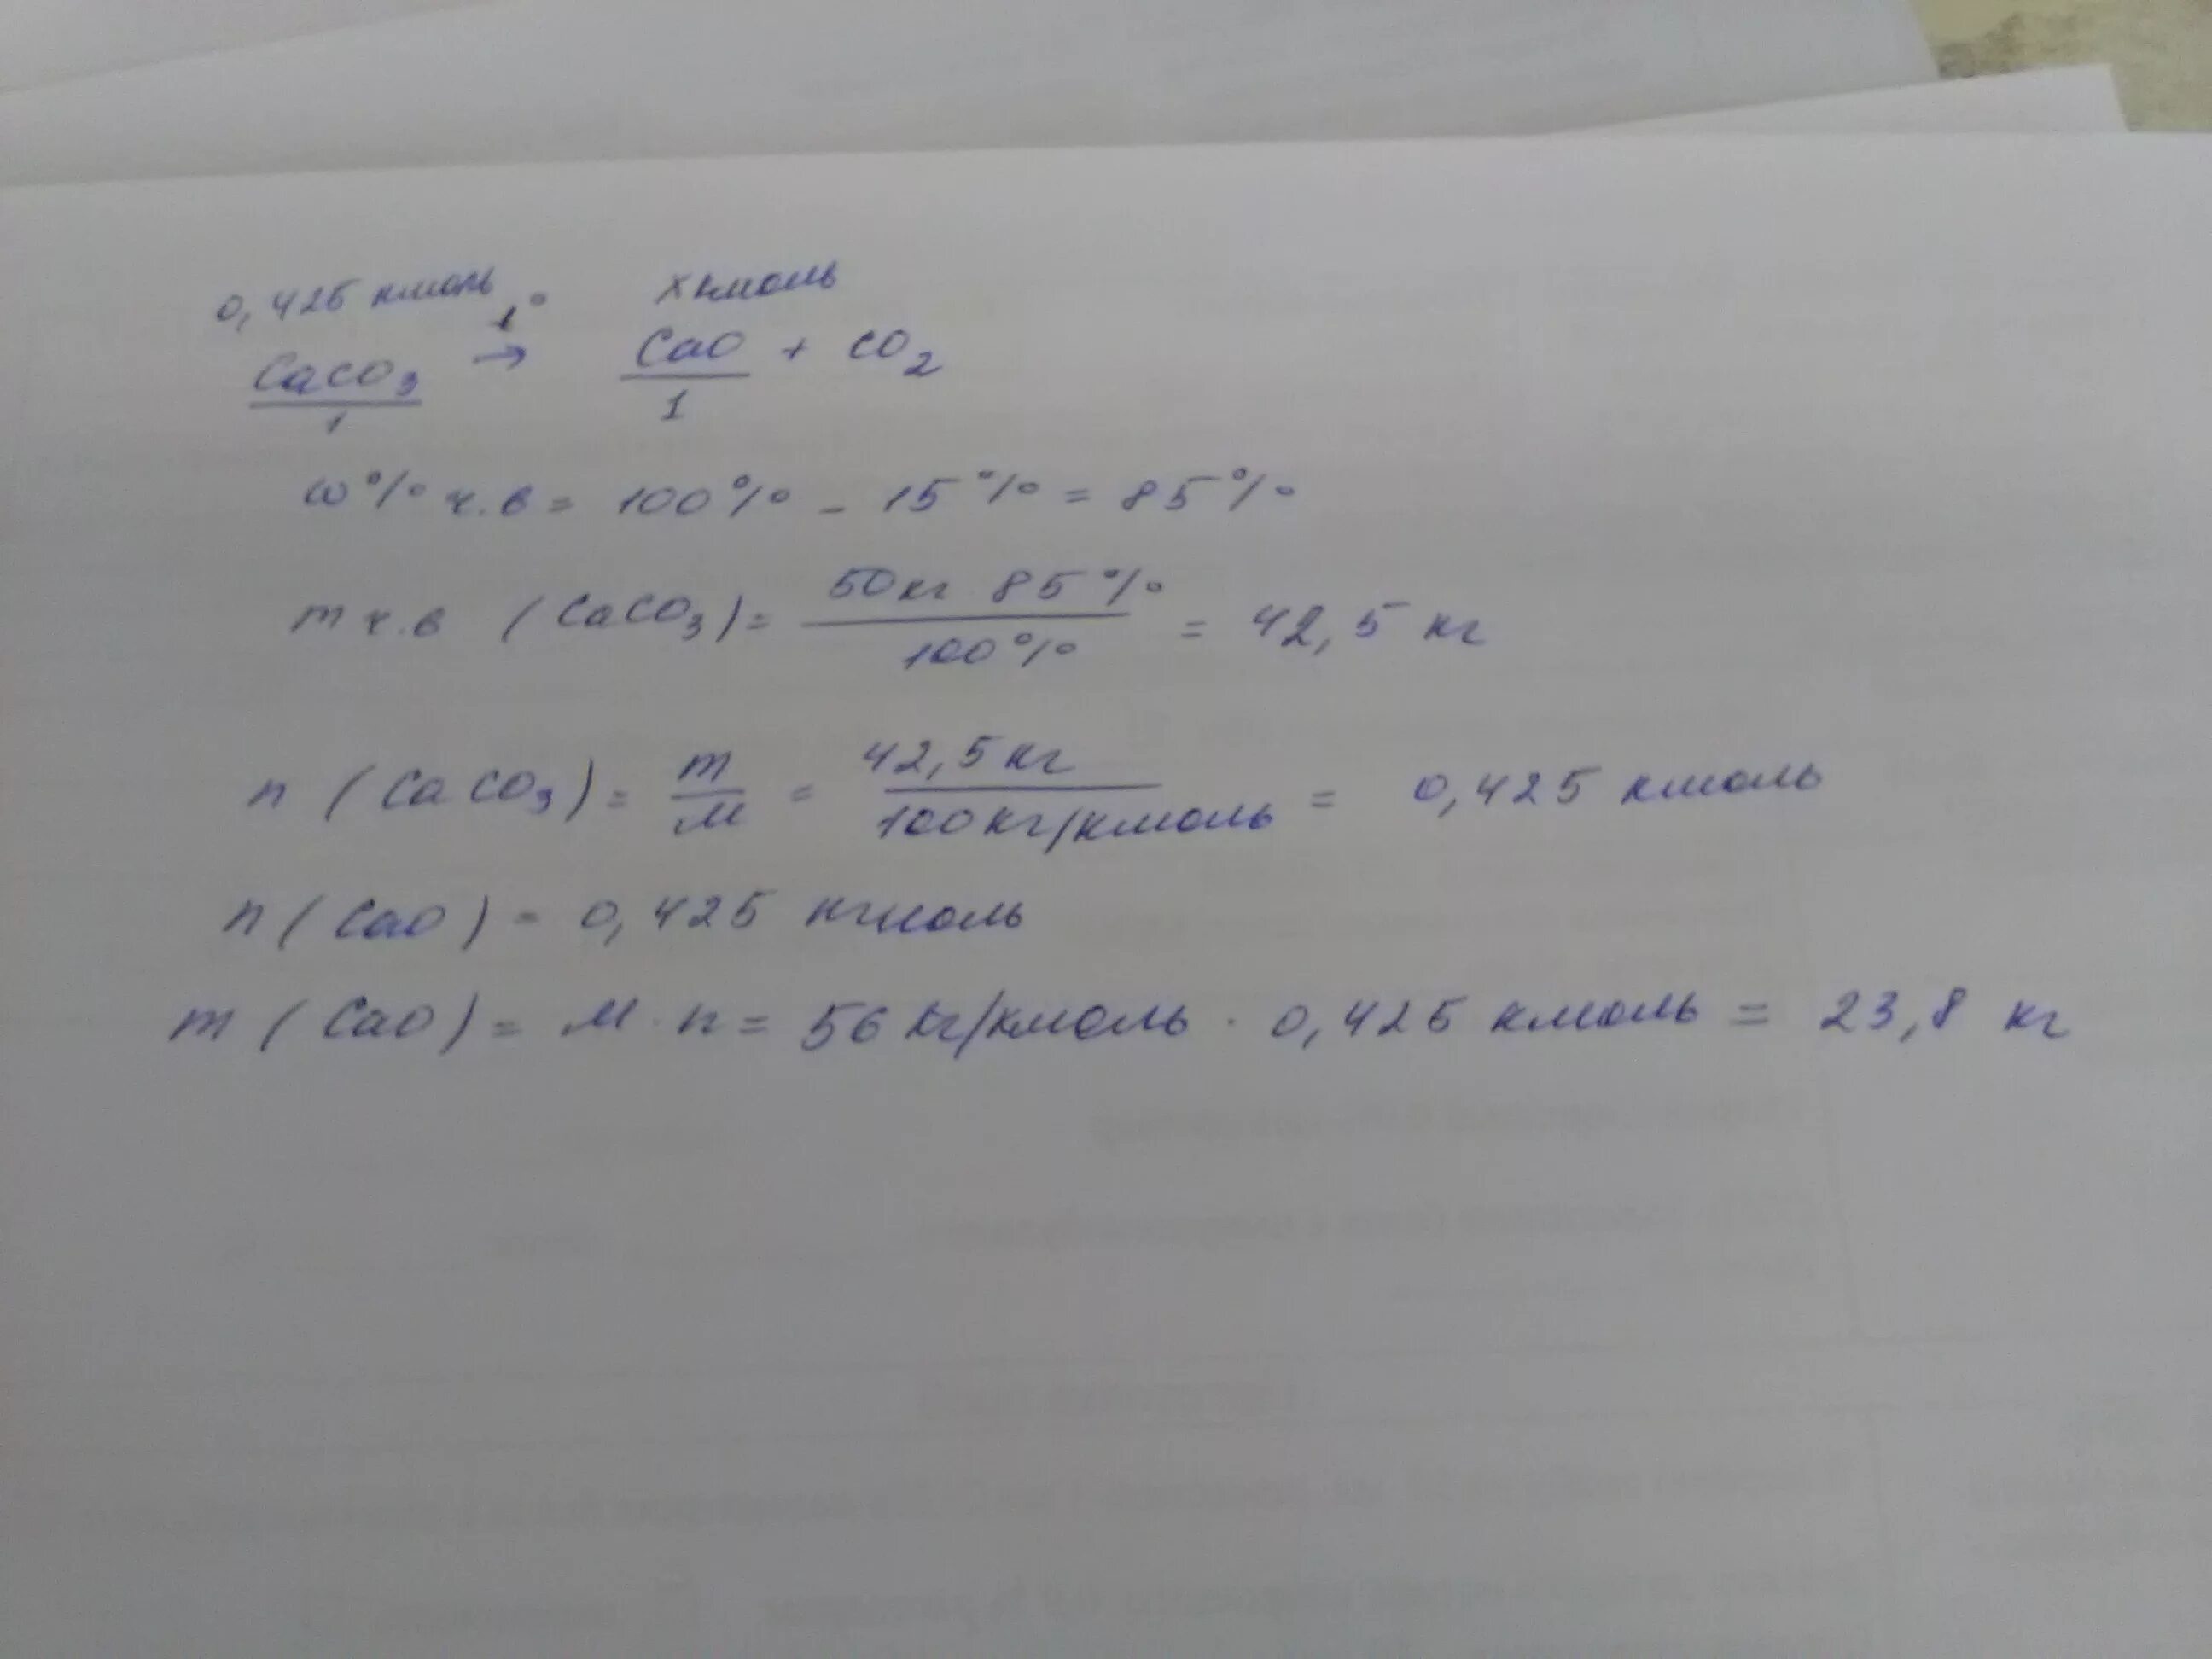 0,425 кмоль xкмоль
CaCO3 t° → CaO + CO2
1 1
ω% ч.в = 100% - 15% = 85%
m ч.в (CaCO3) = 50кг 85% / 100% = 42,5 кг
n (CaCO3) = m / M = 42,5кг / 100кг/кмоль = 0,425 кмоль
n (CaO) = 0,425 кгмоль
m (CaO) = M · n = 56 кг/кмоль · 0,425 кмоль = 23,8 кг